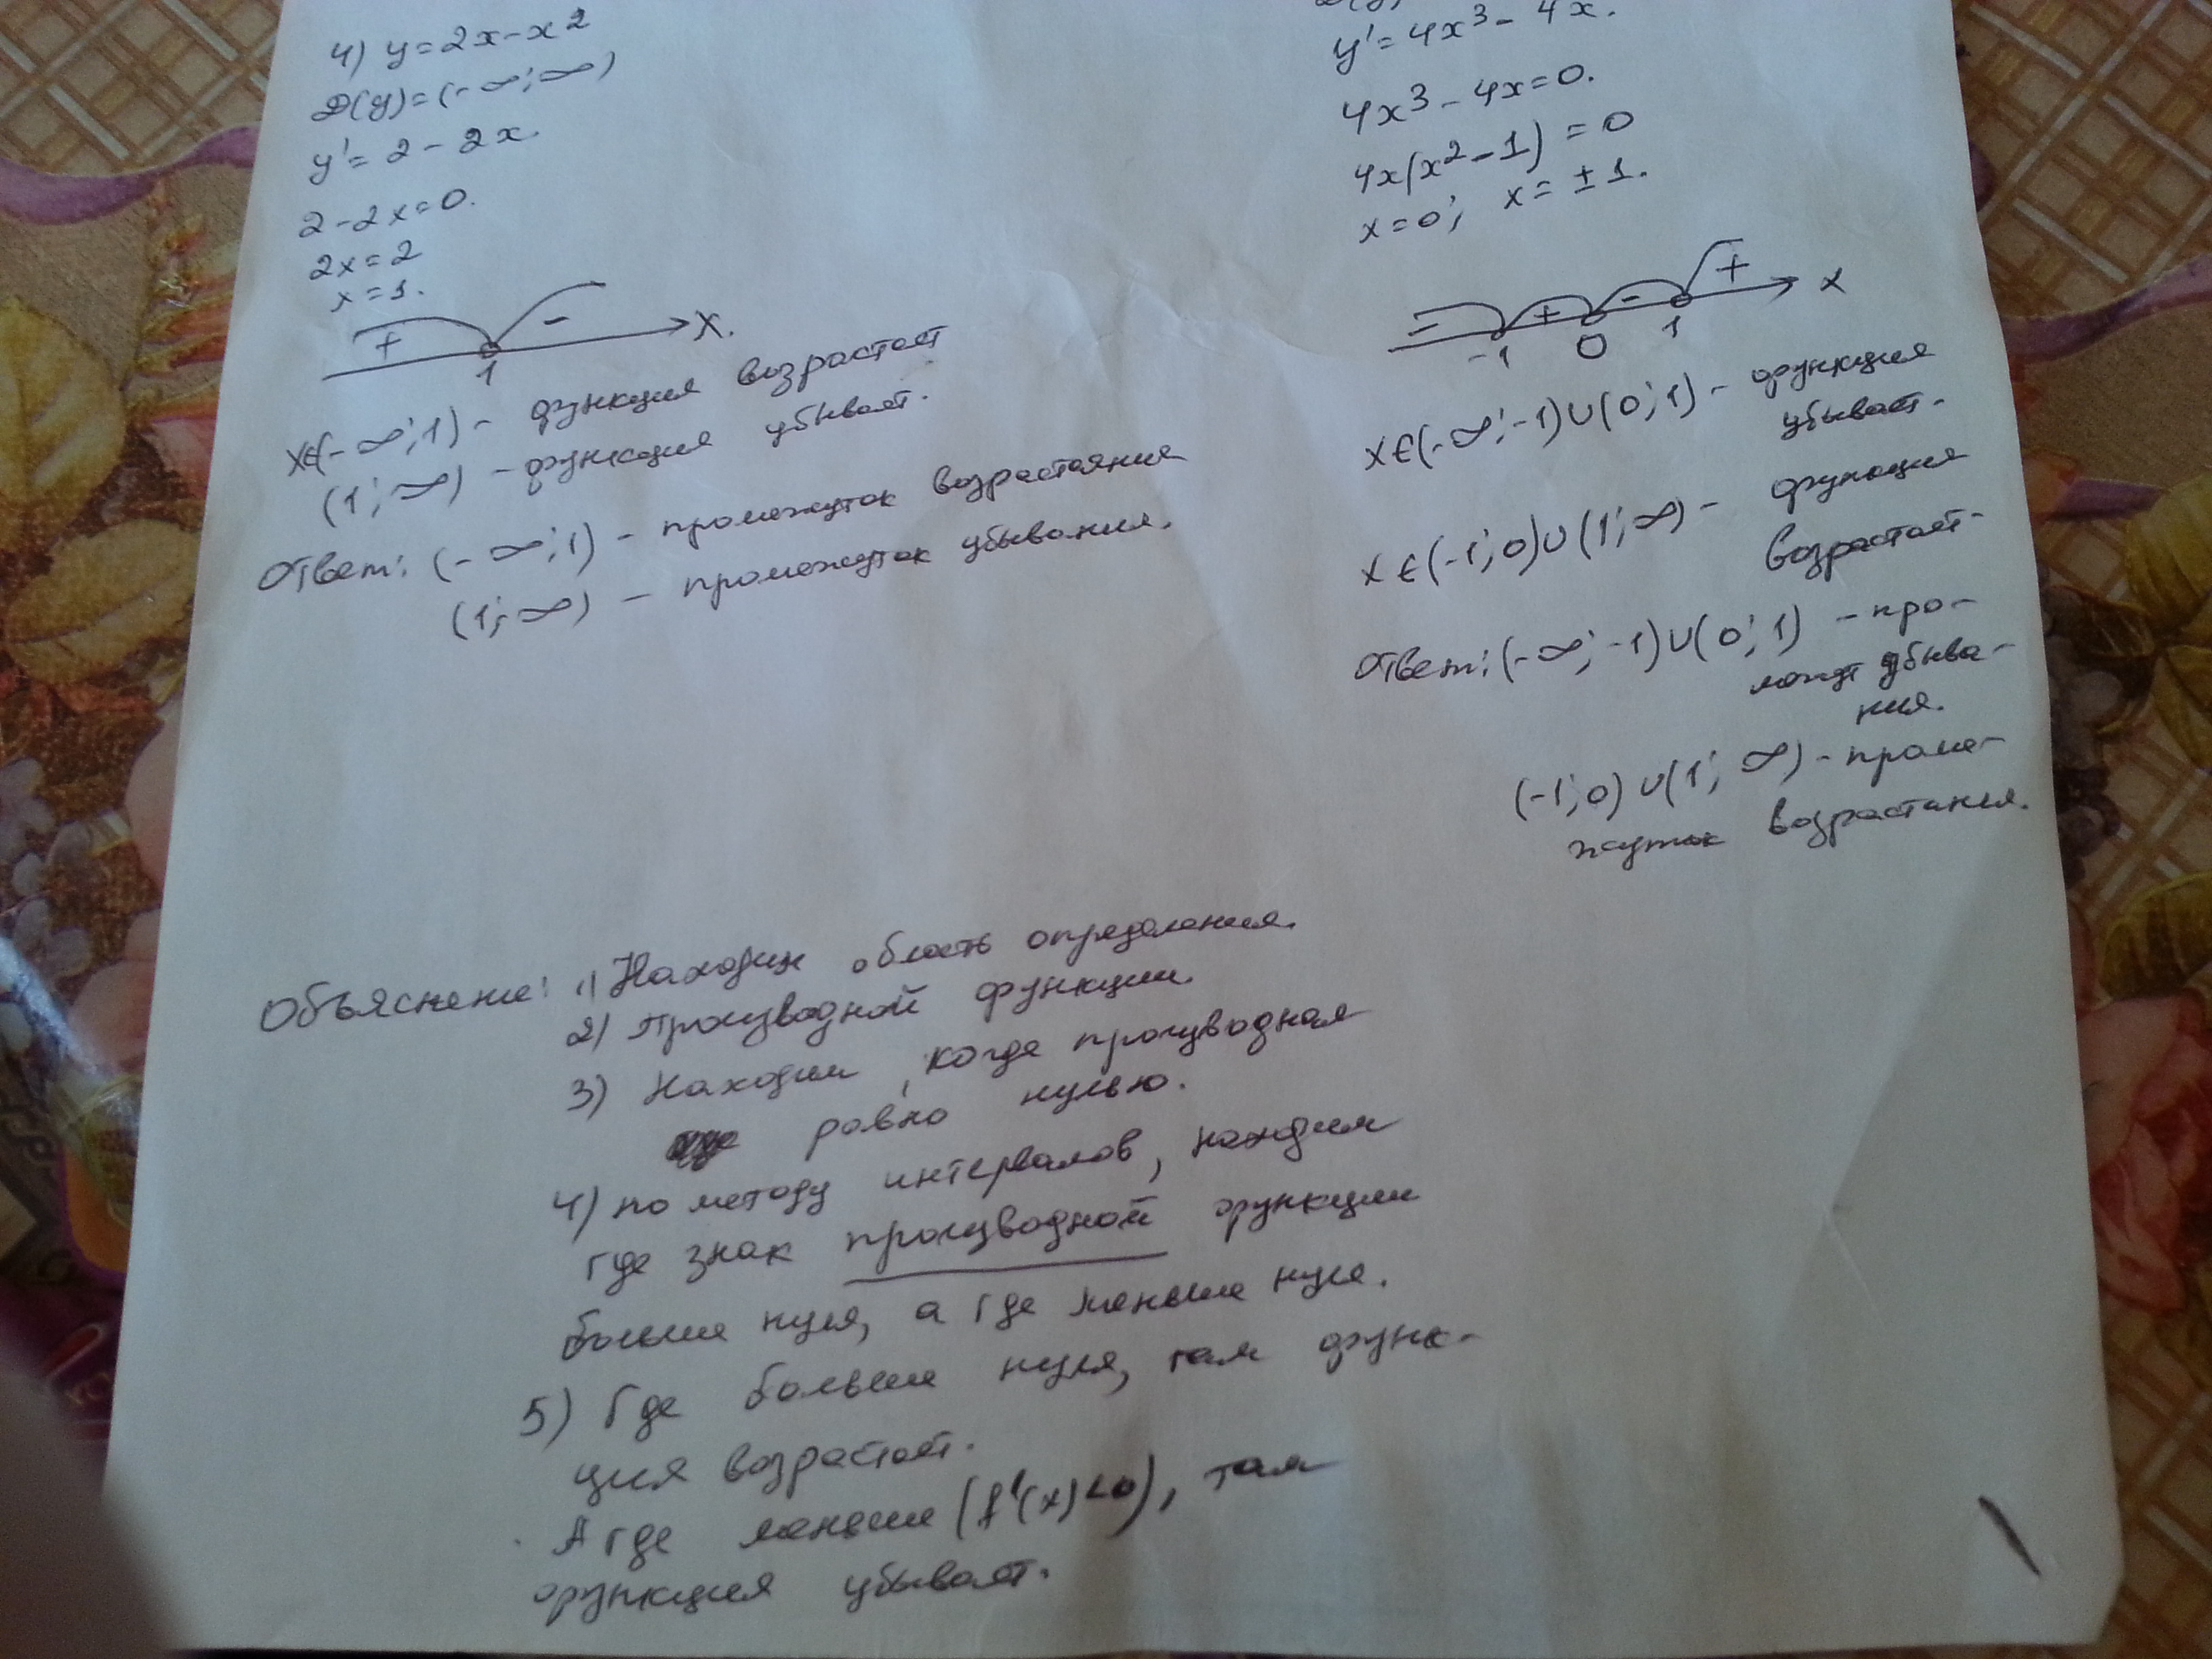 4) y=2x-x²
D(y)=(-∞;∞)
y'=2-2x.
2-2x=0.
2x=2
x=1.
+ - X.
1
x∈(-∞;1) - функция возрастает
(1;∞) - функция убывает.
Ответ: (-∞;1) - промежуток возрастания
(1;∞) - промежуток убывания.
y'=4x³-4x.
4x³-4x=0.
4x(x²-1)=0
x=0; x=±1.
- + - + x
-1 0 1
x∈(-∞;-1)∪(0;1) - функция
убывает.
x∈(-1;0)∪(1;∞) - функция
возрастает.
Ответ: (-∞;-1)∪(0;1) - про-
убыва-
ния.
(-1;0)∪(1;∞) - проме-
жуток возрастания.
Объяснение: 1) Находим область определения.
2) Производной функции.
3) Находим, когда производная
равно нулью.
4) по методу интервалов, находим
где знак производной функции
больше нуля, а где меньше нуля.
5) Где больше нуля, там функ-
ция возрастает.
А где меньше (f'(x)<0), там
функция убывает.